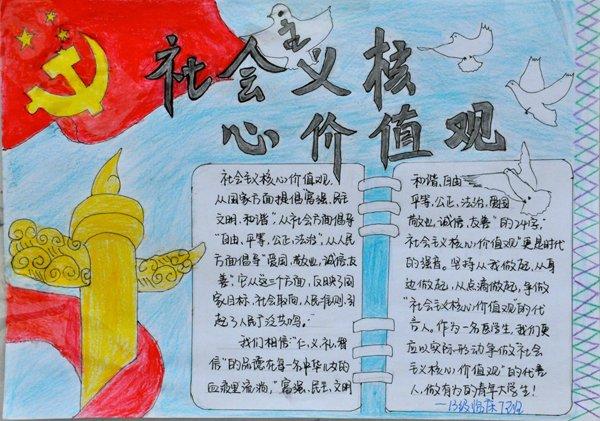 社会主义核
心价值观
社会主义核心价值观,
从国家方面提倡"富强、民主
文明、和谐",从社会方面倡导
"自由、平等、公正、法治",从人民
方面倡导"爱国、敬业、诚信、友
善"。它从这三个方面,反映了国
家目标、社会取向、人民准则,引
起了人民广泛共鸣。
我们相信"仁、义、礼、智
信"的品德在每一名中华儿女的
血液里流淌,"富强、民主、文明
和谐、自由
平等、公正、法治、爱国
敬业、诚信、友善"的24字,
"社会主义核心价值观"更是时代
的强音。坚持从我做起,从身
边做起,从点滴做起,争做
"社会主义核心价值观"的代
言人。作为一名医学生,我们更
应以实际行动争做"社会
主义核心价值观"的代言
人,做有为的青年大学生!
—13级临床7班